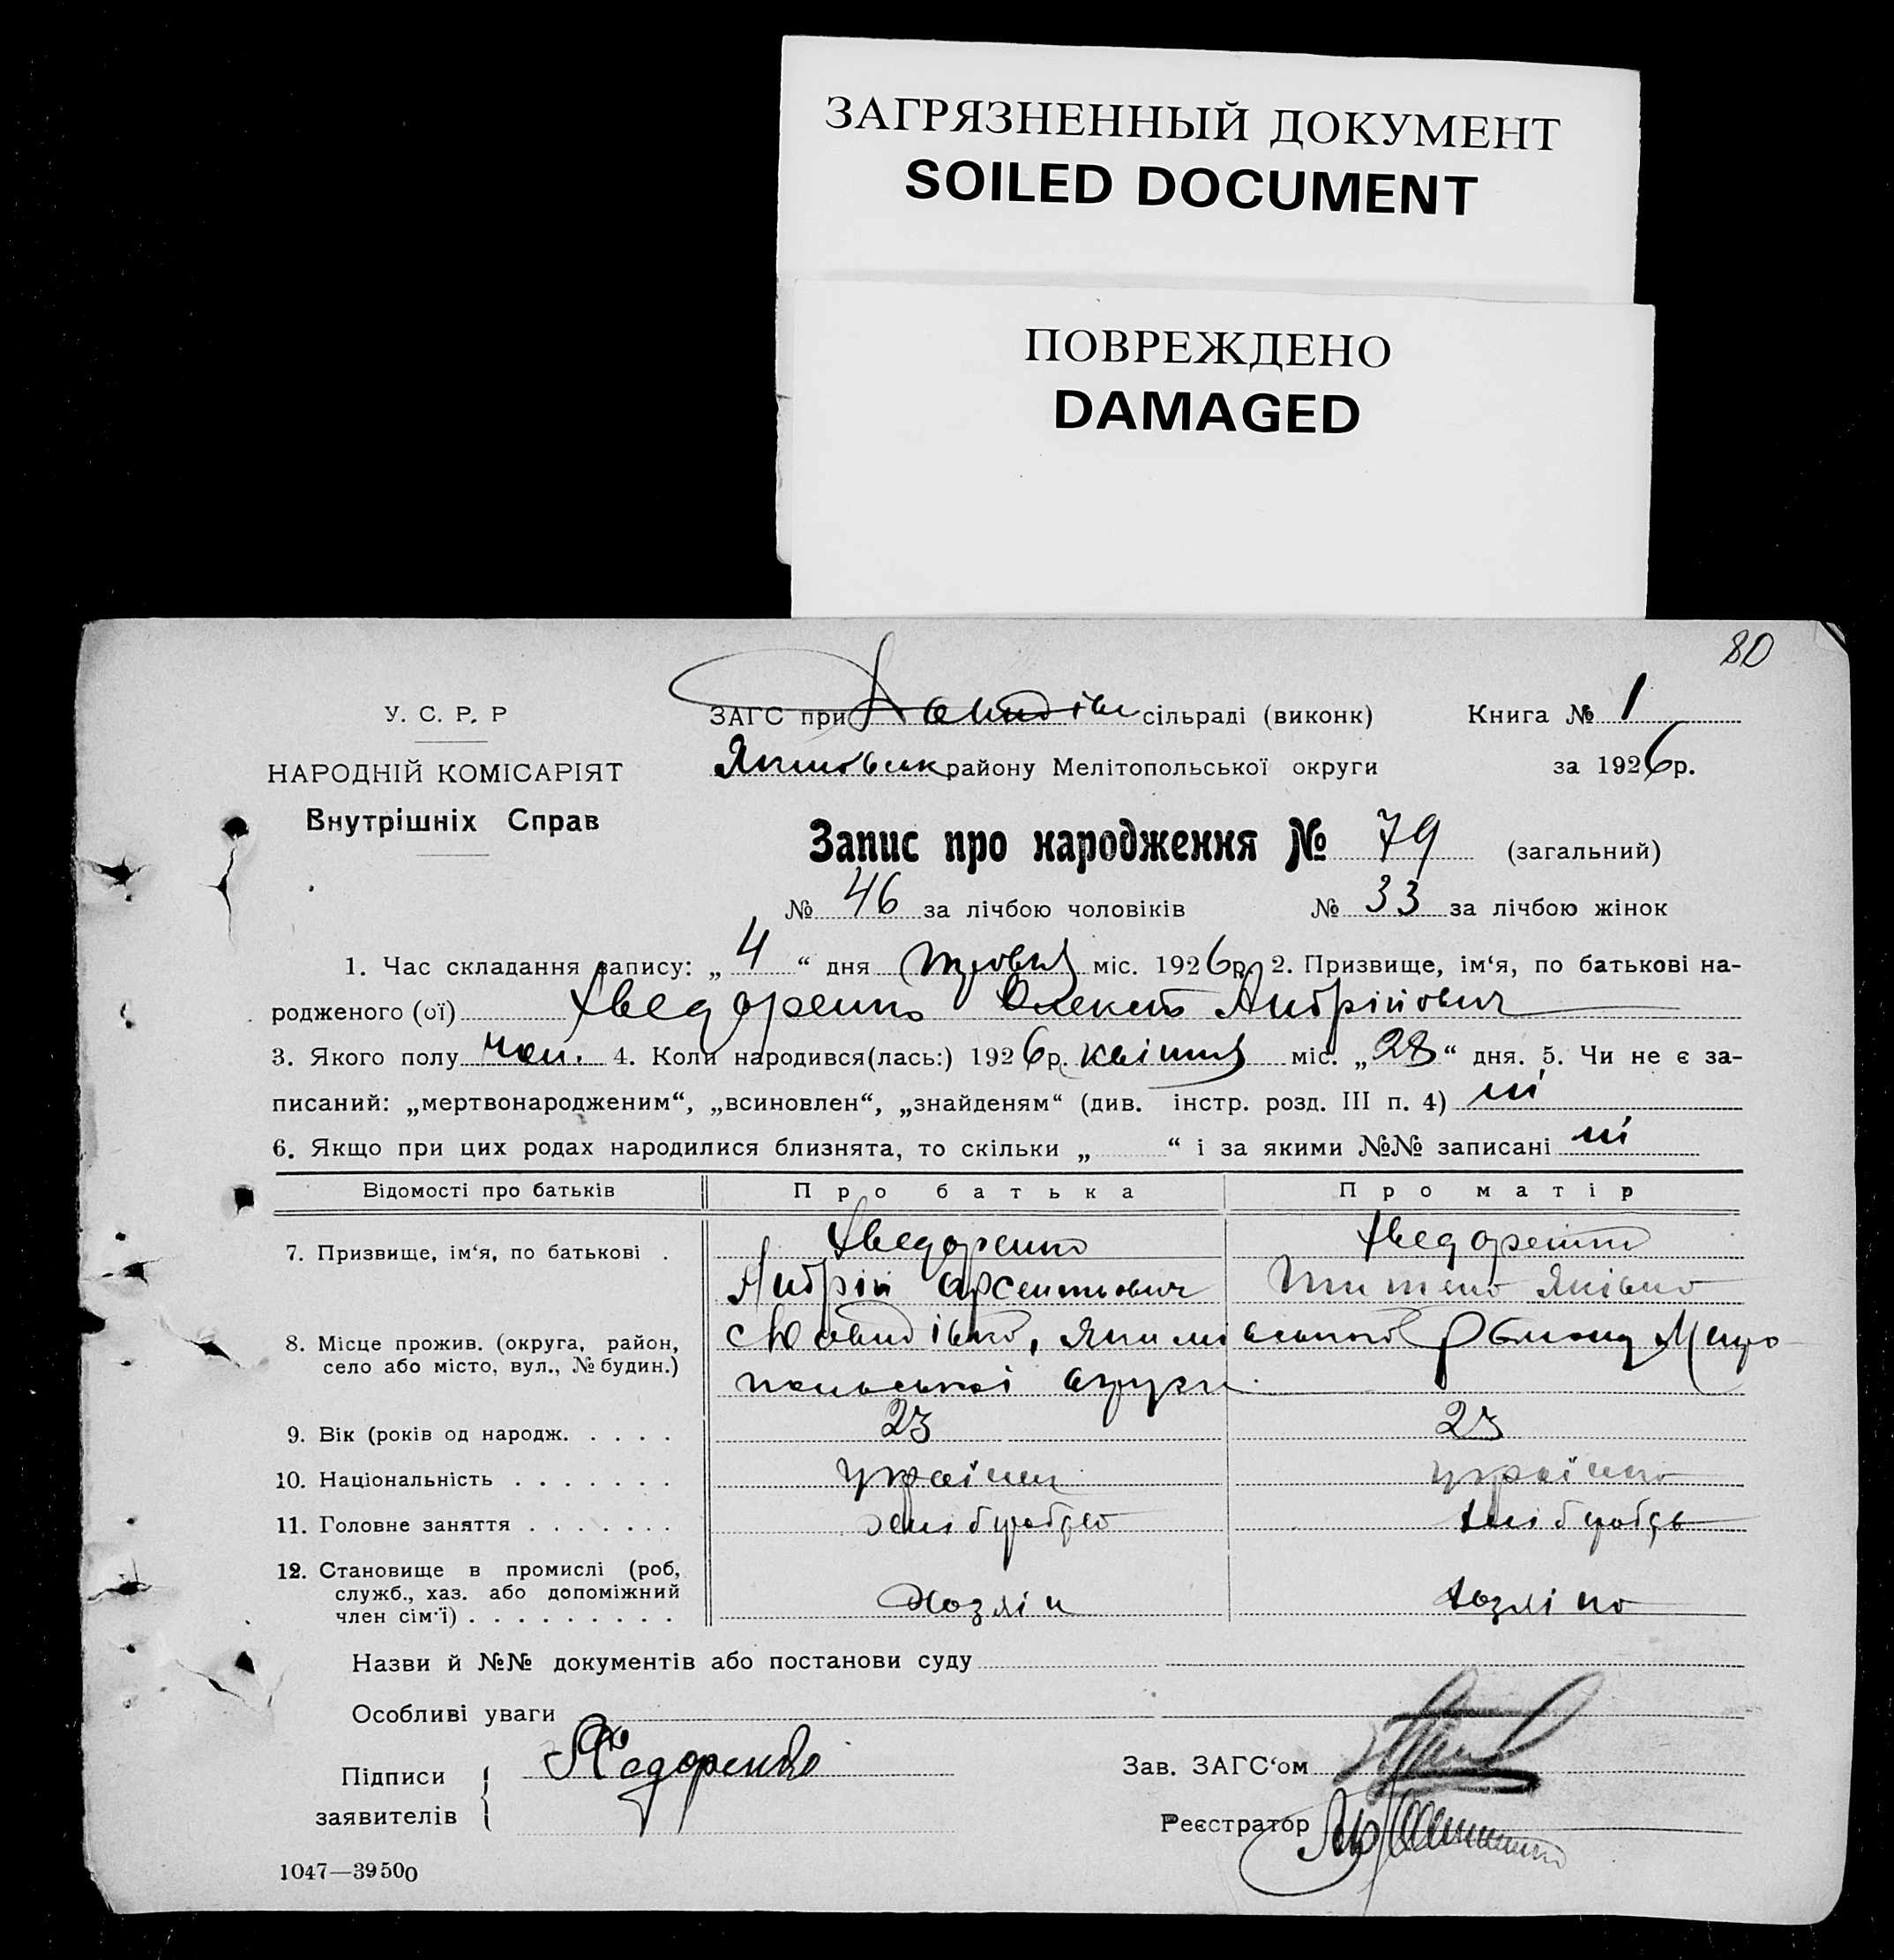 ЗАГРЯЗНЕННЫЙ ДОКУМЕНТ
SOILED DOCUMENT
ПОВРЕЖДЕНО
DAMAGED
80
У. С. Р. Р
НАРОДНІЙ КОМІСАРІЯТ
Внутрішніх Справ
ЗАГС при сільраді (виконк)
Книга № 1
району Мелітопольської округи
за 1926р.
Запис про народження № 79 (загальний)
№ 46 за лічбою чоловіків № 33 за лічбою жінок
1. Час складання запису: „ 4 “ дня Травня міс. 1926р. 2. Призвище, ім‘я, по батькові на-
родженого (ої) Хведоренко Олексій Андрійович
3. Якого полу чол. 4. Коли народився(лась:) 1926р. квітня міс. „28“ дня. 5. Чи не є за-
писаний: „мертвонародженим“, „всиновлен“, „знайденям“ (див. інстр. розд. III п. 4) ні
6. Якщо при цих родах народилися близнята, то скільки „ “ і за якими №№ записані ні
Відомості про батьків Про батька Про матір
7. Призвище, ім‘я, по батькові . Хведоренко Хведоренко
Андрій Арсентьович Яківна
8. Місце прожив. (округа, район,
село або місто, вул., № будин.)
с Давидівка,
округи
9. Вік (років од народж. . . . . 23 23
10. Національність . . . . . . . українец українка
11. Головне заняття . . . . . . . хлібороб
12. Становище в промислі (роб,
служб., хаз. або допоміжний
член сім‘ї) . . . . . . . . . Хозяін хозяіка
Назви й №№ документів або постанови суду
Особливі уваги
Підписи
заявителів
Зав. ЗАГС‘ом
Реєстратор
1047—39500